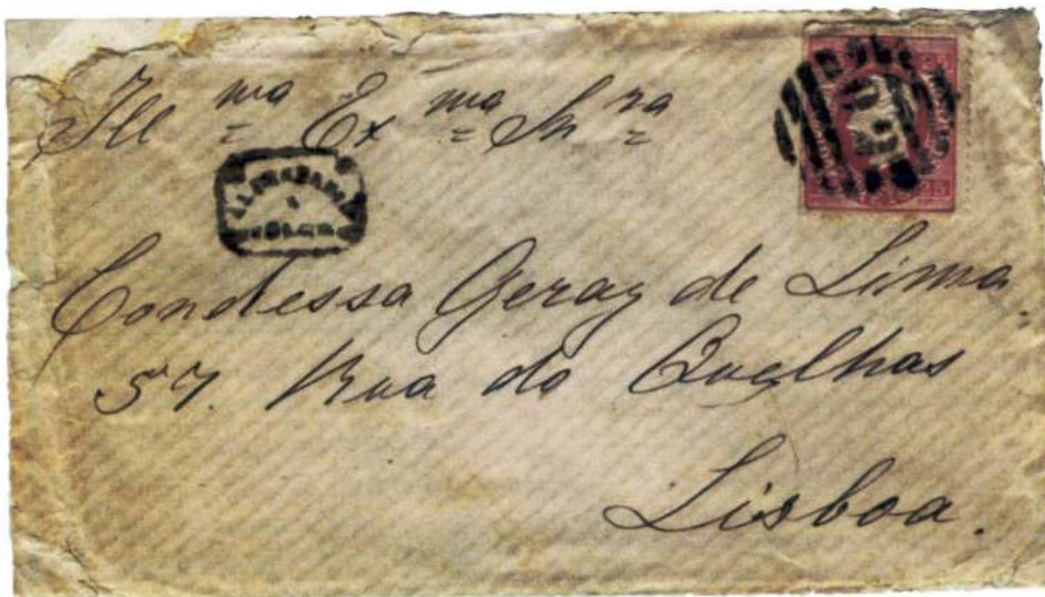 Ill ma Ex ma Sn ra
Condessa Geraz de Lima
57. Rua do Quelhas
Lisboa.
25